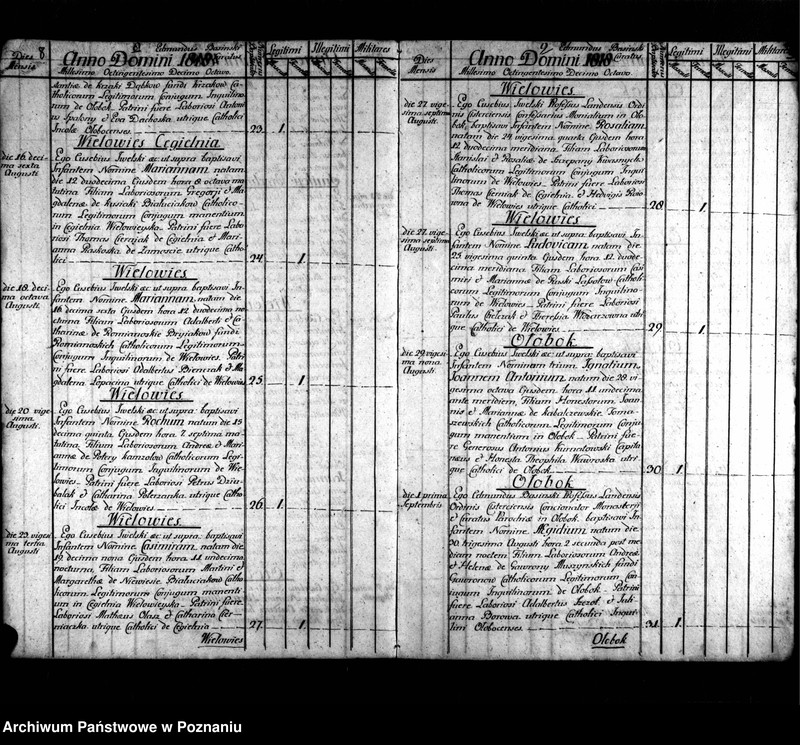 8
Dies Mensis
Edmundus Basinski Curatus
Anno Domini 1818
Millesimo Octingentesimo Decimo Octavo.
Legitimi
Illegitimi
Militares
tholicorum Legitimorum Conjugum Inquilino-
rum de Olobok. Patrini fuere Laboriosi Antoni-
us Spalony et Eva Dachoska utrique Catholici
Incolæ Olobocenses.
23. 1.
Wielowies Cegielnia
die 16. deci-
ma sexta
Augusti.
Ego Eusebius Iwelski ac ut supra baptisavi
Infantem Nomine Mariannam natam
die 12 duodecima Ejusdem hora 8 octava ma-
tutina Filiam Laboriosorum Gregorii et Ma-
gdalenæ de Kusicki Bialuciakow Catholico-
rum Legitimorum Conjugum manentium
in Cegielnia Wielowieyska. Patrini fuere Labo-
riosi Thomas Cerniak de Cegielnia et Mari-
anna Raskoska de Zamoscie utrique Catho-
lici
24. 1.
Wielowies
die 18. deci-
ma octava
Augusti.
Ego Eusebius Iwelski ac ut supra baptisavi In-
fantem Nomine Mariannam, natam die
16 decima sexta Ejusdem hora 12 duodecima no-
cturna Filiam Laboriosorum Adalberti et Ca-
tharinæ de Romianoskie Bryiakow fundi
Romianoskich Catholicorum Legitimorum
Conjugum Inquilinorum de Wielowies. Patri-
ni fuere Laboriosi Adalbertus Biernczak et Ma-
gdalena Lopacina utrique Catholici de Wielowies
25. 1.
Wielowies
die 20 vige-
sima
Augusti.
Ego Eusebius Iwelski ac ut supra: baptisavi
Infantem Nomine Rochum natum die 15
decima quinta Ejusdem hora 7 septima ma-
tutina Filium Laboriosorum Andreæ et Mari-
annæ de Petery Kamzolow Catholicorum Legi-
timorum Conjugum Inquilinorum de Wie-
lowies. Patrini fuere Laboriosi Petrus Daiu-
balak et Catharina Poterzanka utrique Catho-
lici Incolæ de Wielowies
26. 1.
Wielowies
die 23. vigesi-
ma tertia
Augusti
Ego Eusebius Iwelski ac ut supra: baptisavi
Infantem Nomine Casimiram natam die
19. decima nona Ejusdem hora 11 undecima
nocturna, Filiam Laboriosorum Martini et
Margarethæ de Niewiesie Bialuciakow Catho-
licorum Legitimorum Conjugum manenti-
um in Cegielnia Wielowieyska. Patrini fuere
Laboriosi Matheus Olasz et Catharina Cer-
niaczka utrique Catholici de Cegielnia
27. 1.
Wielowies
Dies Mensis
9
Edmundus Basinski Curatus
Anno Domini 1818
Millesimo Octingentesimo Decimo Octavo.
Legitimi
Illegitimi
Militares
Wielowies
die 27. vige-
sima septima
Augusti.
Ego Eusebius Iwelski Professus Landensis Ordi-
nis Cisterciensis Confessarius Monialium in Olo-
bok baptisavi Infantem Nomine Rosaliam
natam die 24 vigesima quarta Ejusdem hora
12 duodecima meridiana Filiam Laboriosorum
Stanislai et Rosaliæ de Szczepany Kwasnych
Catholicorum Legitimorum Conjugum Inqui-
linorum de Wielowies. Patrini fuere Laboriosi
Thomas Cerniak de Cegielnia et Hedvigis
de Wielowies utrique Catholici
28 1.
Wielowies
die 27. vige-
sima septima
Augusti.
Ego Eusebius Iwelski ac ut supra: baptisavi In-
fantem Nomine Ludovicam natam die
25 vigesima quinta Ejusdem hora 12 duode-
cima meridiana, Filiam Laboriosorum Casi-
miri et Mariannæ de Ruski Lassotow Catholi-
corum Legitimorum Conjugum Inquilino-
rum de Wielowies. Patrini fuere Laboriosi
Paulus Cielczak et Theresia Wdarzowna utri-
que Catholici de Wielowies
29. 1.
Olobok
die 29. vigesi-
ma nona
Augusti.
Ego Eusebius Iwelski ac ut supra: baptisavi
Infantem Nominum trium Ignatium,
Joannem Antonium, natum die 28. vi-
gesima octava Ejusdem hora 11 undecima
ante meridiem, Filium Honestorum Joan-
nis et Mariannæ de Kabalczewskie Toma-
szewskich Catholicorum Legitimorum Conju-
gum manentium in Olobok. Patrini fue-
re Generosus Antonius Kurnatowski Capita-
neus et Honesta Theophila Wawroska utri-
que Catholici de Olobok
30 1.
Olobok
die 1 prima
Septembris
Ego Edmundus Basinski Professus Landensis
Ordinis Cisterciensis Concionator Monasterii
et Curatus Parochiæ in Olobok. baptisavi In-
fantem Nomine Ægidium natum die
30 trigesima Augusti hora 2 secunda post me-
diam noctem Filium Laboriosorum Andreæ
et Helenæ de Gawrony Muszynskich fundi
Gawroncio Catholicorum Legitimorum Con-
jugum Inquilinorum de Olobok. Patrini
fuere Laboriosi Adalbertus Jezof et Juli-
anna Borowa utrique Catholici Inqui-
lini Olobocenses.
31. 1.
Olobok
Archiwum Państwowe w Poznaniu